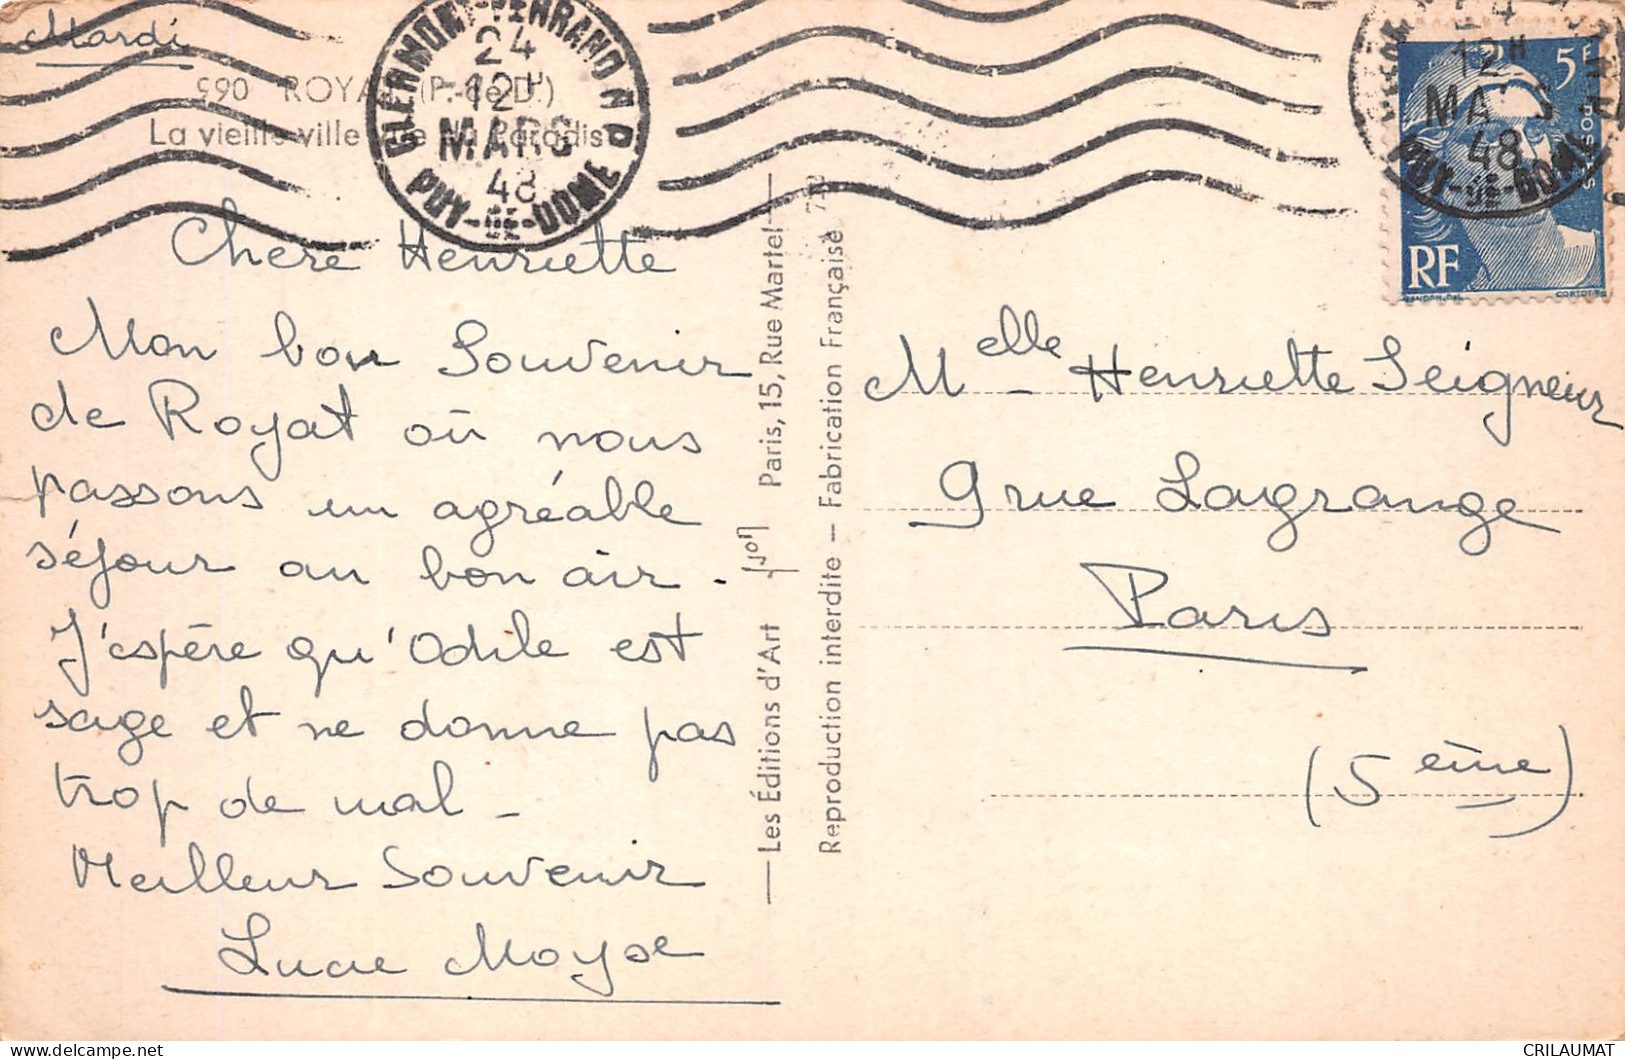 Mardi
990 ROYAT (P.-de-D.)
La vieille ville Rue du Paradis
CLERMONT-FERRAND R P
24
12 H
MARS
48
PUY-DE-DOME
12 H
MARS
48
PUY-DE-DOME
5F
POSTES
RF
GANDON DEL.
Chère Henriette
Mon bon Souvenir
de Royat où nous
passons un agréable
séjour au bon air.
J'espère qu'Odile est
sage et ne donne pas
trop de mal -
Meilleur Souvenir
Lucie Moyse
Les Éditions d'Art Yvon Paris, 15, Rue Martel
Reproduction interdite - Fabrication Française
Melle Henriette Seigneur
9 rue Lagrange
Paris
(5ème)
CRILAUMAT